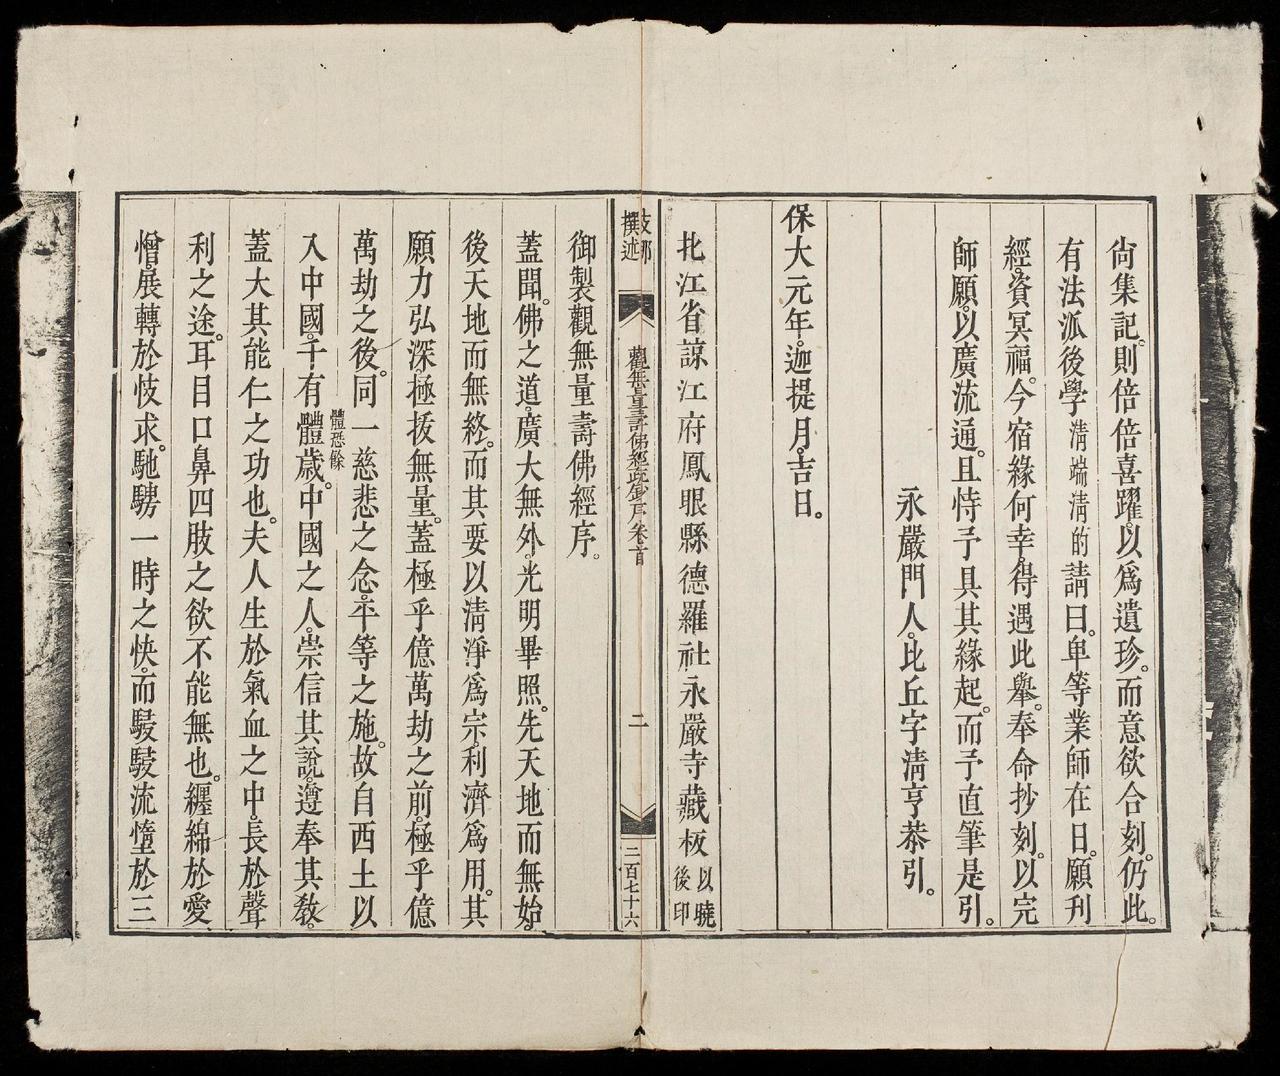 尙集記。則倍倍喜躍。以爲遺珍。而意欲合刻。仍此。
有法派後學淸端淸的請曰。卑等業師在日。願刊
經。資冥福。今宿緣何幸。得遇此舉。奉命抄刻。以完
師願。以廣流通。且恃予具其緣起。而予直筆是引。
永嚴門人。比丘字淸亨恭引。
保大元年。迦提月。吉日。
北江省諒江府鳳眼縣德羅社永嚴寺藏板
以曉
後印
支那
撰述
觀無量壽佛經疏鈔序卷首
二
二百七十六
御製觀無量壽佛經序。
蓋聞。佛之道。廣大無外。光明畢照。先天地而無始。
後天地而無終。而其要以淸淨爲宗。利濟爲用。其
願力弘深。極拔無量。蓋極乎億萬劫之前。極乎億
萬劫之後。同一慈悲之念。平等之施。故自西土以
入中國。千有體歲。中國之人。崇信其說。遵奉其教。
體恐餘
蓋大其能仁之功也。夫人生於氣血之中。長於聲
利之途。耳目口鼻四肢之欲不能無也。纏綿於愛
憎。展轉於忮求。馳騁一時之快。而駸駸流墮於三